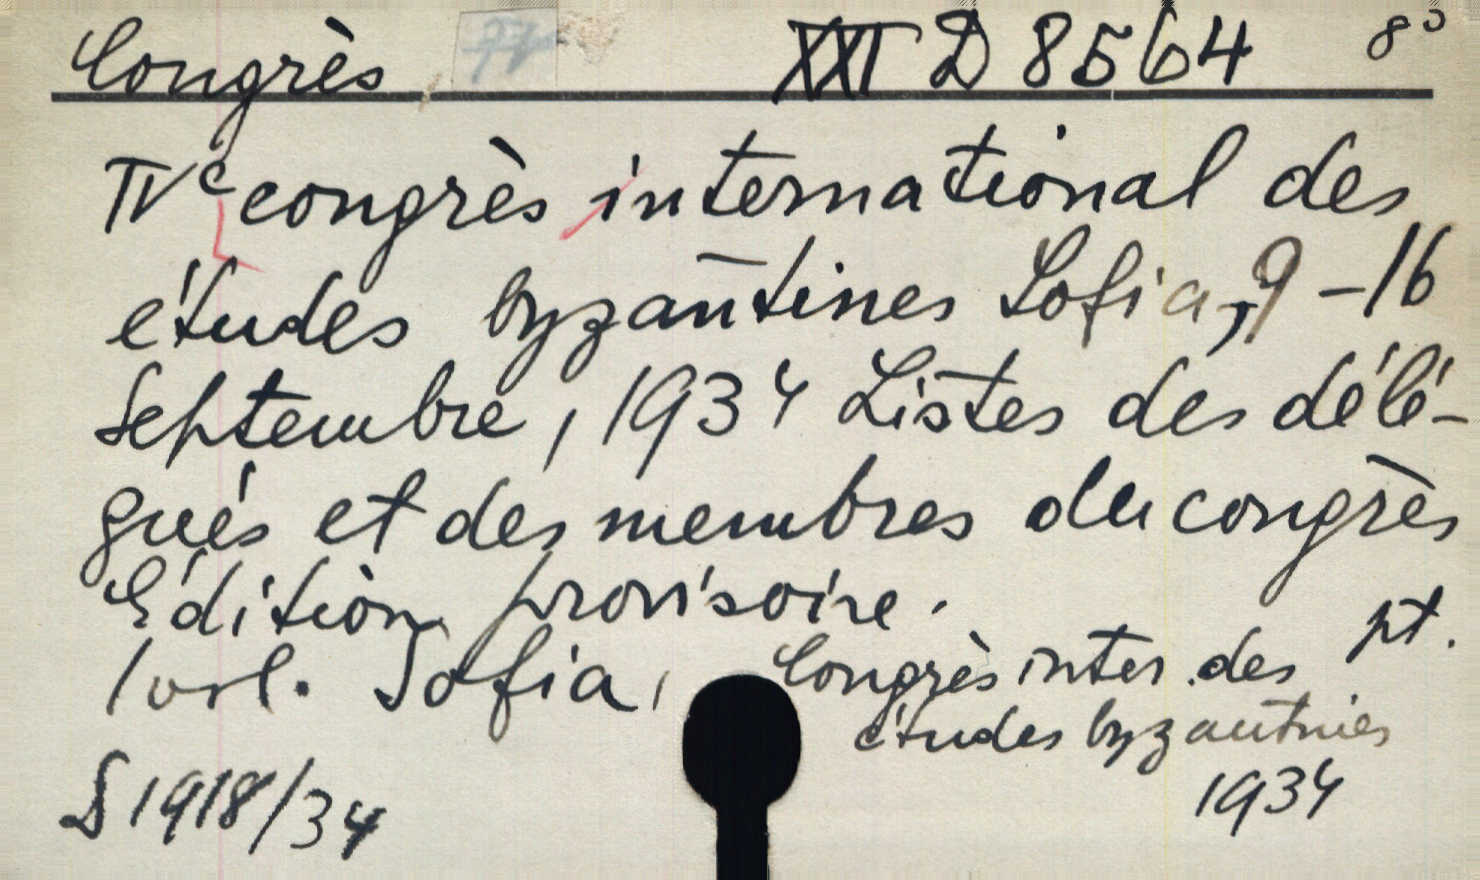 Congrès 77 XXI D 8564 8°
IVe congrès international des
études byzantines Sofia, 9-16
Septembre, 1934 Listes des délé-
gués et des membres du congrès
Édition provisoire.
1 vol. Sofia, Congrès inter. des pt.
études byzantines
1934
S 1918/34